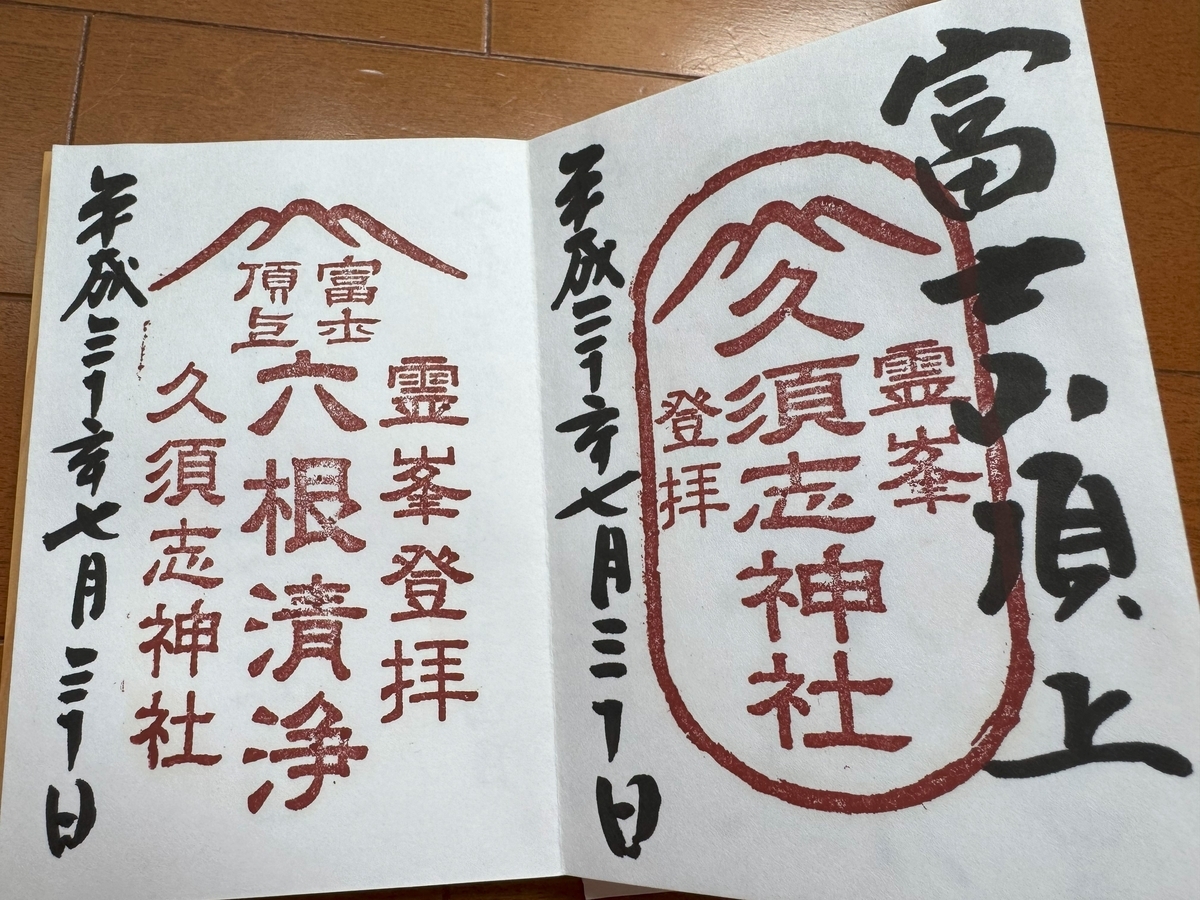 富士山頂上
霊峯
久須志神社
登拝
平成三十年七月三十日
霊峯登拝
富士
頂上
六根清浄
久須志神社
平成三十年七月三十日